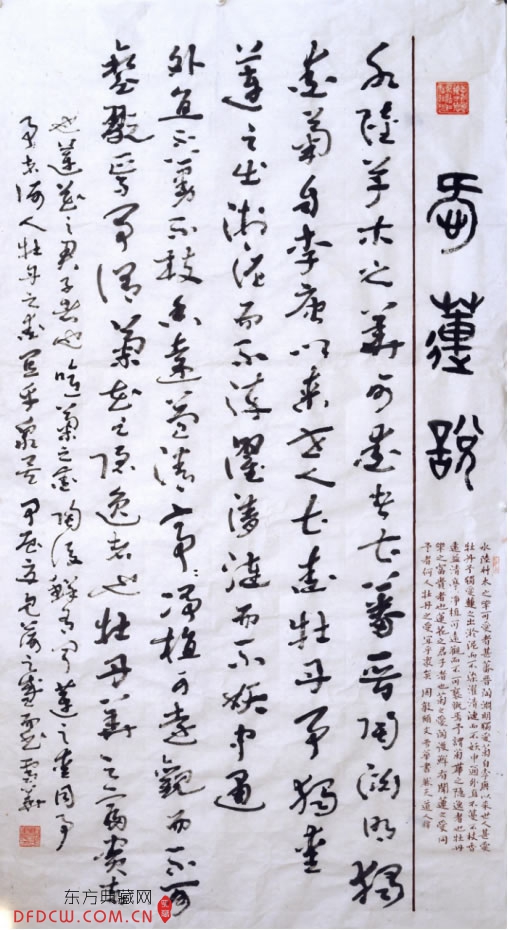 愛蓮說
水陸草木之華可愛者甚蕃晉陶淵明獨愛菊自李唐以來世人甚愛
牡丹予獨愛蓮之出淤泥而不染濯清漣而不妖中通外直不蔓不枝香
遠益清亭亭淨植可遠觀而不可褻翫焉予謂菊華之隱逸者也牡丹
華之富貴者也蓮花之君子者也菊之愛陶後鮮有聞蓮之愛同
予者何人牡丹之愛宜乎衆矣 周敦頤文 華書 道人
水陸草木之華可愛者甚蕃晉陶淵明獨
愛菊自李唐以來世人甚愛牡丹予獨愛
蓮之出淤泥而不染濯清漣而不妖中通
外直不蔓不枝香遠益清亭亭淨植可遠觀而不可
褻翫焉予謂菊花之隱逸者也牡丹華之富貴者
也蓮花之君子者也噫菊之愛陶後鮮有聞蓮之愛同予
予者何人牡丹之愛宜乎衆矣
东方典藏网
DFDCW.COM.CN